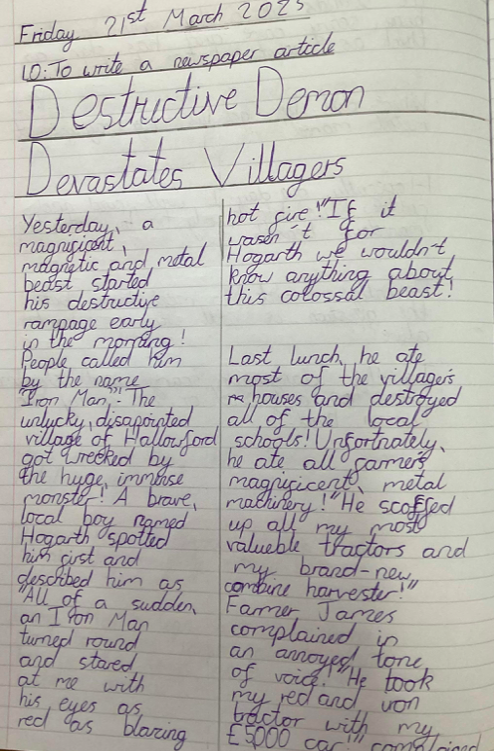 Friday 21st March 2025
LO: To write a newspaper article
Destructive Demon
Devastates Villagers
Yesterday, a
magnificant,
magnetic and metal
beast started
his destructive
rampage early
in the morning!
People called him
by the name
"Iron Man." The
unlucky, disapointed
village of Hallowford
got wrecked by
the huge, immense
monster! A brave,
local boy named
Hogarth spotted
him first and
described him as
"All of a sudden,
an Iron Man
turned round
and stared
at me with
his eyes as
red as blazing
hot fire!" "If it
wasen't for
Hogarth we wouldn't
know anything about
this colossal beast!
Last lunch, he ate
most of the villager's
houses and destroyed
all of the local
schools! Unfortnately,
he ate all farmer's
magnificent, metal
machinery! "He scoffed
up all my most
valueble tractors and
my brand-new
combine harvester!"
Farmer James
complained in
an annoyed tone
of voice! "He took
my red and von
tractor with my
£5000 car!" complained